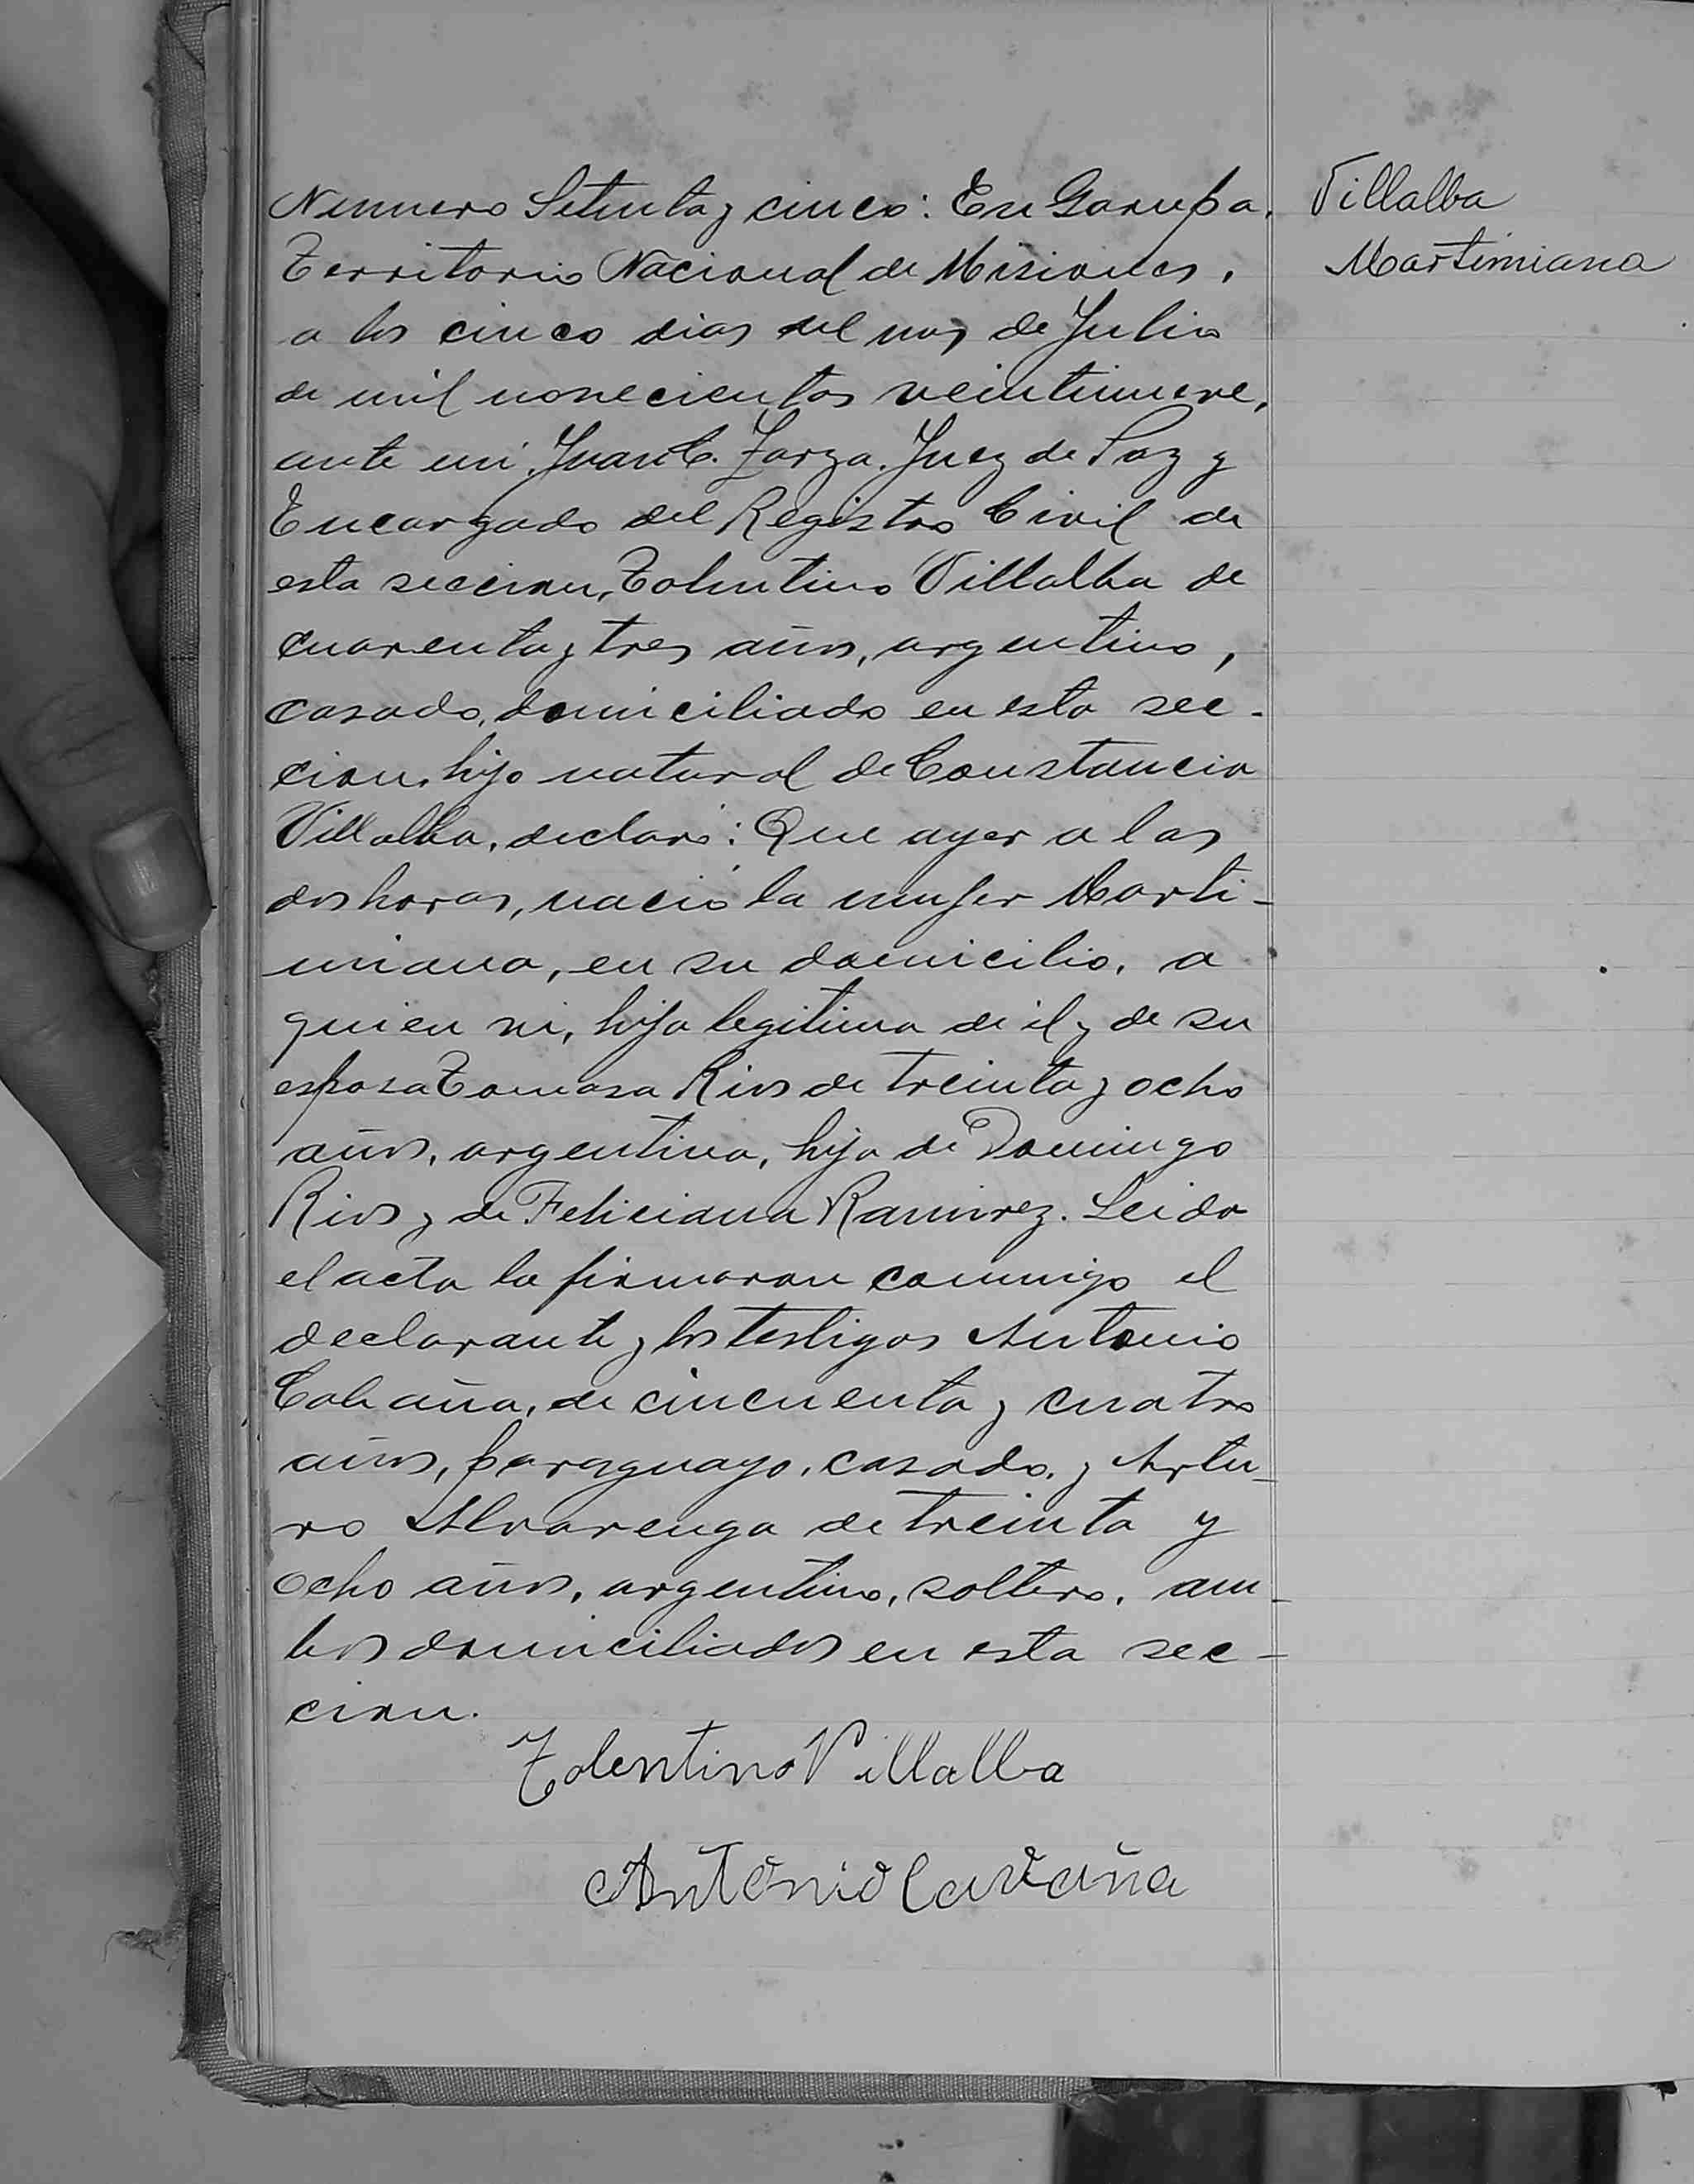 Numero Setenta y cinco: En Garupa,
Territorio Nacional de Misiones,
a los cinco dias del mes de Julio
de mil novecientos veintinueve,
ante mi Juan C. Zarza. Juez de Paz y
Encargado del Registro Civil de
esta seccion, Tolentino Villalba de
cuarenta y tres años, argentino,
casado, domiciliado en esta sec-
cion, hijo natural de Constancia
Villalba, declaró: Que ayer a las
dos horas, nació la mujer Marti-
miana, en su domicilio, a
quien vi, hija legitima de él y de su
esposa Tomasa Rios de treinta y ocho
años, argentina, hija de Domingo
Rios y de Feliciana Ramirez. Leida
el acta la firmaron conmigo el
declarante y los testigos Antonio
Cabaña, de cincuenta y cuatro
años, paraguayo, casado, y Artu-
ro Alvarenga de treinta y
ocho años, argentino, soltero, am-
bos domiciliados en esta sec-
cion.
Tolentino Villalba
Antonio Cavaña
Villalba
Martimiana